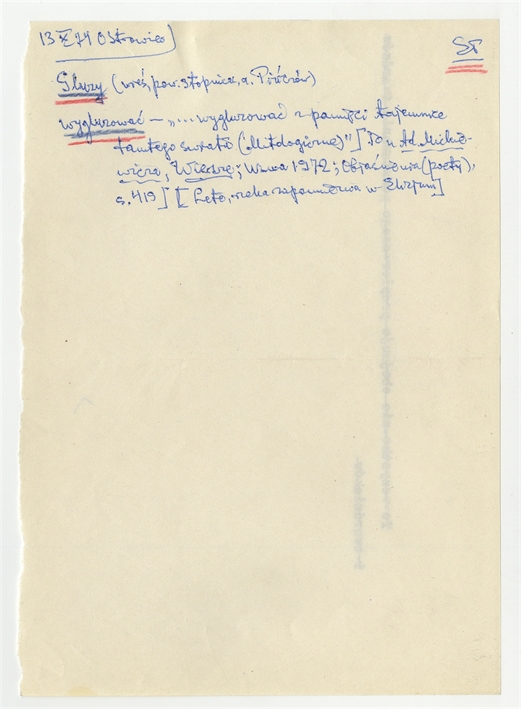 13 X 74 Ostrowiec
ST
Gluzy (wieś, pow. Stopnica, r.
wygluzować – „... wygluzować z pamięci tajemnice
tamtego świata (Mitologiczne)"] To u Ad. Mickie-
wicza, Wiersze; W-wa 1972; Objaśnienia (poety),
s. 419] [Leta, rzeka zapomnienia w Elizjum]